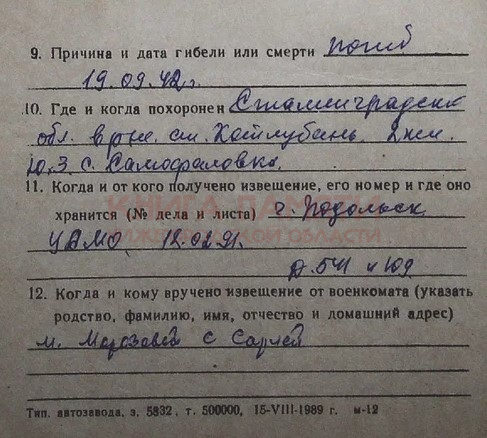 9. Причина и дата гибели или смерти погиб
19.09.42г.
10. Где и когда похоронен Сталинградская
обл. в рне. ст. Котлубань 2 км.
ю.з. с. Самофаловка.
11. Когда и от кого получено извещение, его номер и где оно
хранится (№ дела и листа) г. Подольск
ЦАМО, 12.02.91.
д. 541 и
12. Когда и кому вручено извещение от военкомата (указать
родство, фамилию, имя, отчество и домашний адрес)
м. Морозовой с
Тип. автозавода, з. 5832, т. 500000, 15-VIII-1989 г. м-12
КНИГА ПАМЯТИ
НИЖЕГОРОДСКОЙ ОБЛАСТИ